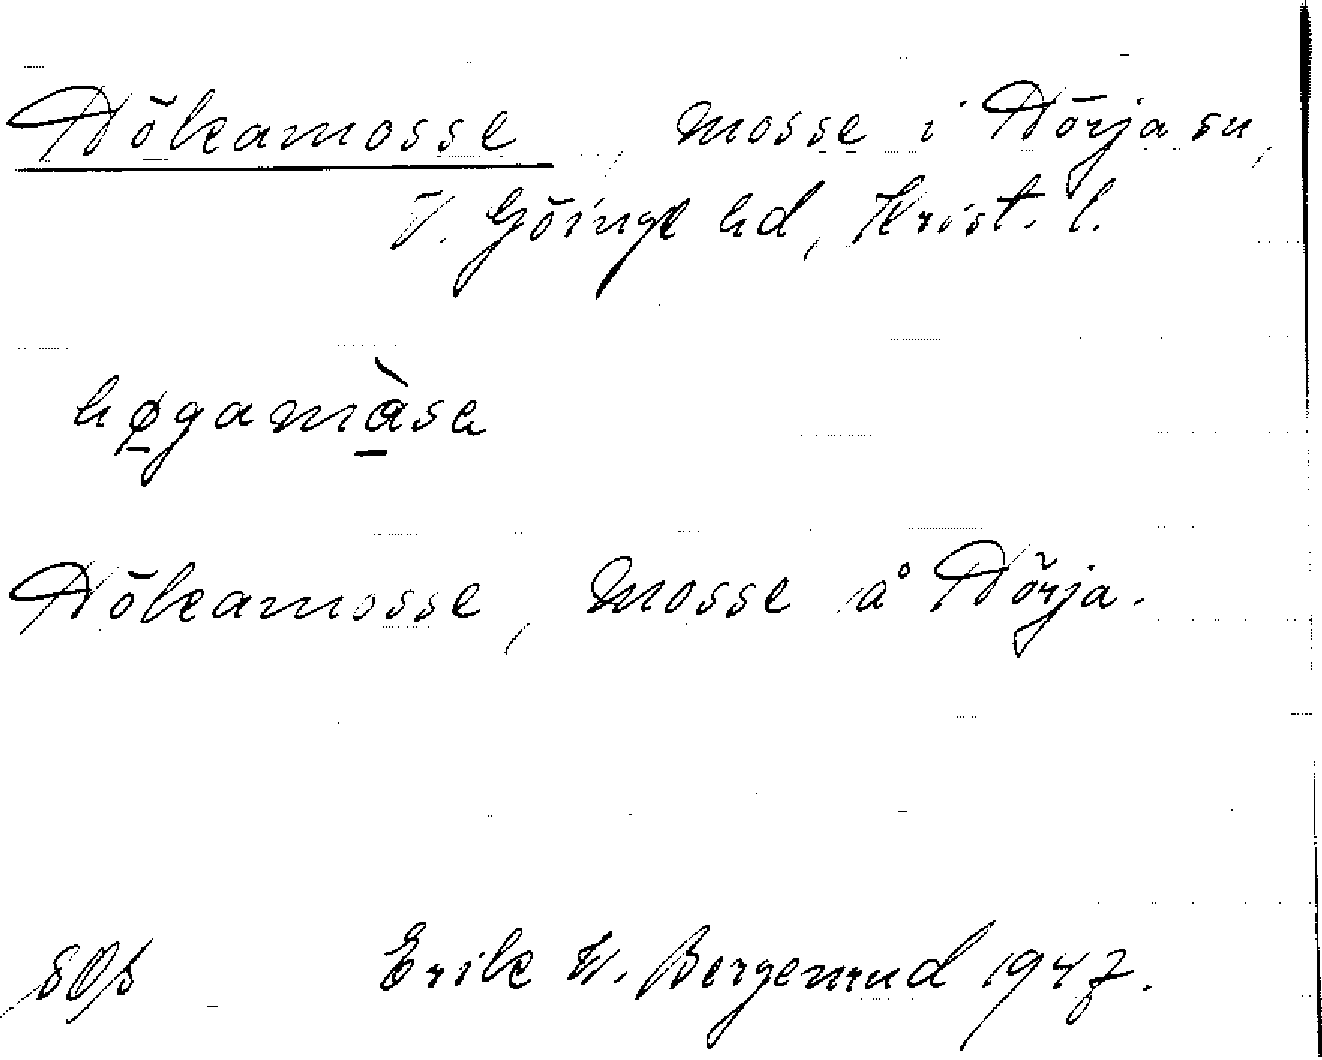 Hökamosse, mosse i Hörja sn,
V. Göinge hd, Krist. l.
høgamàsa
Hökamosse, mosse å Hörja.
Erik W. Bergenrud 1947.